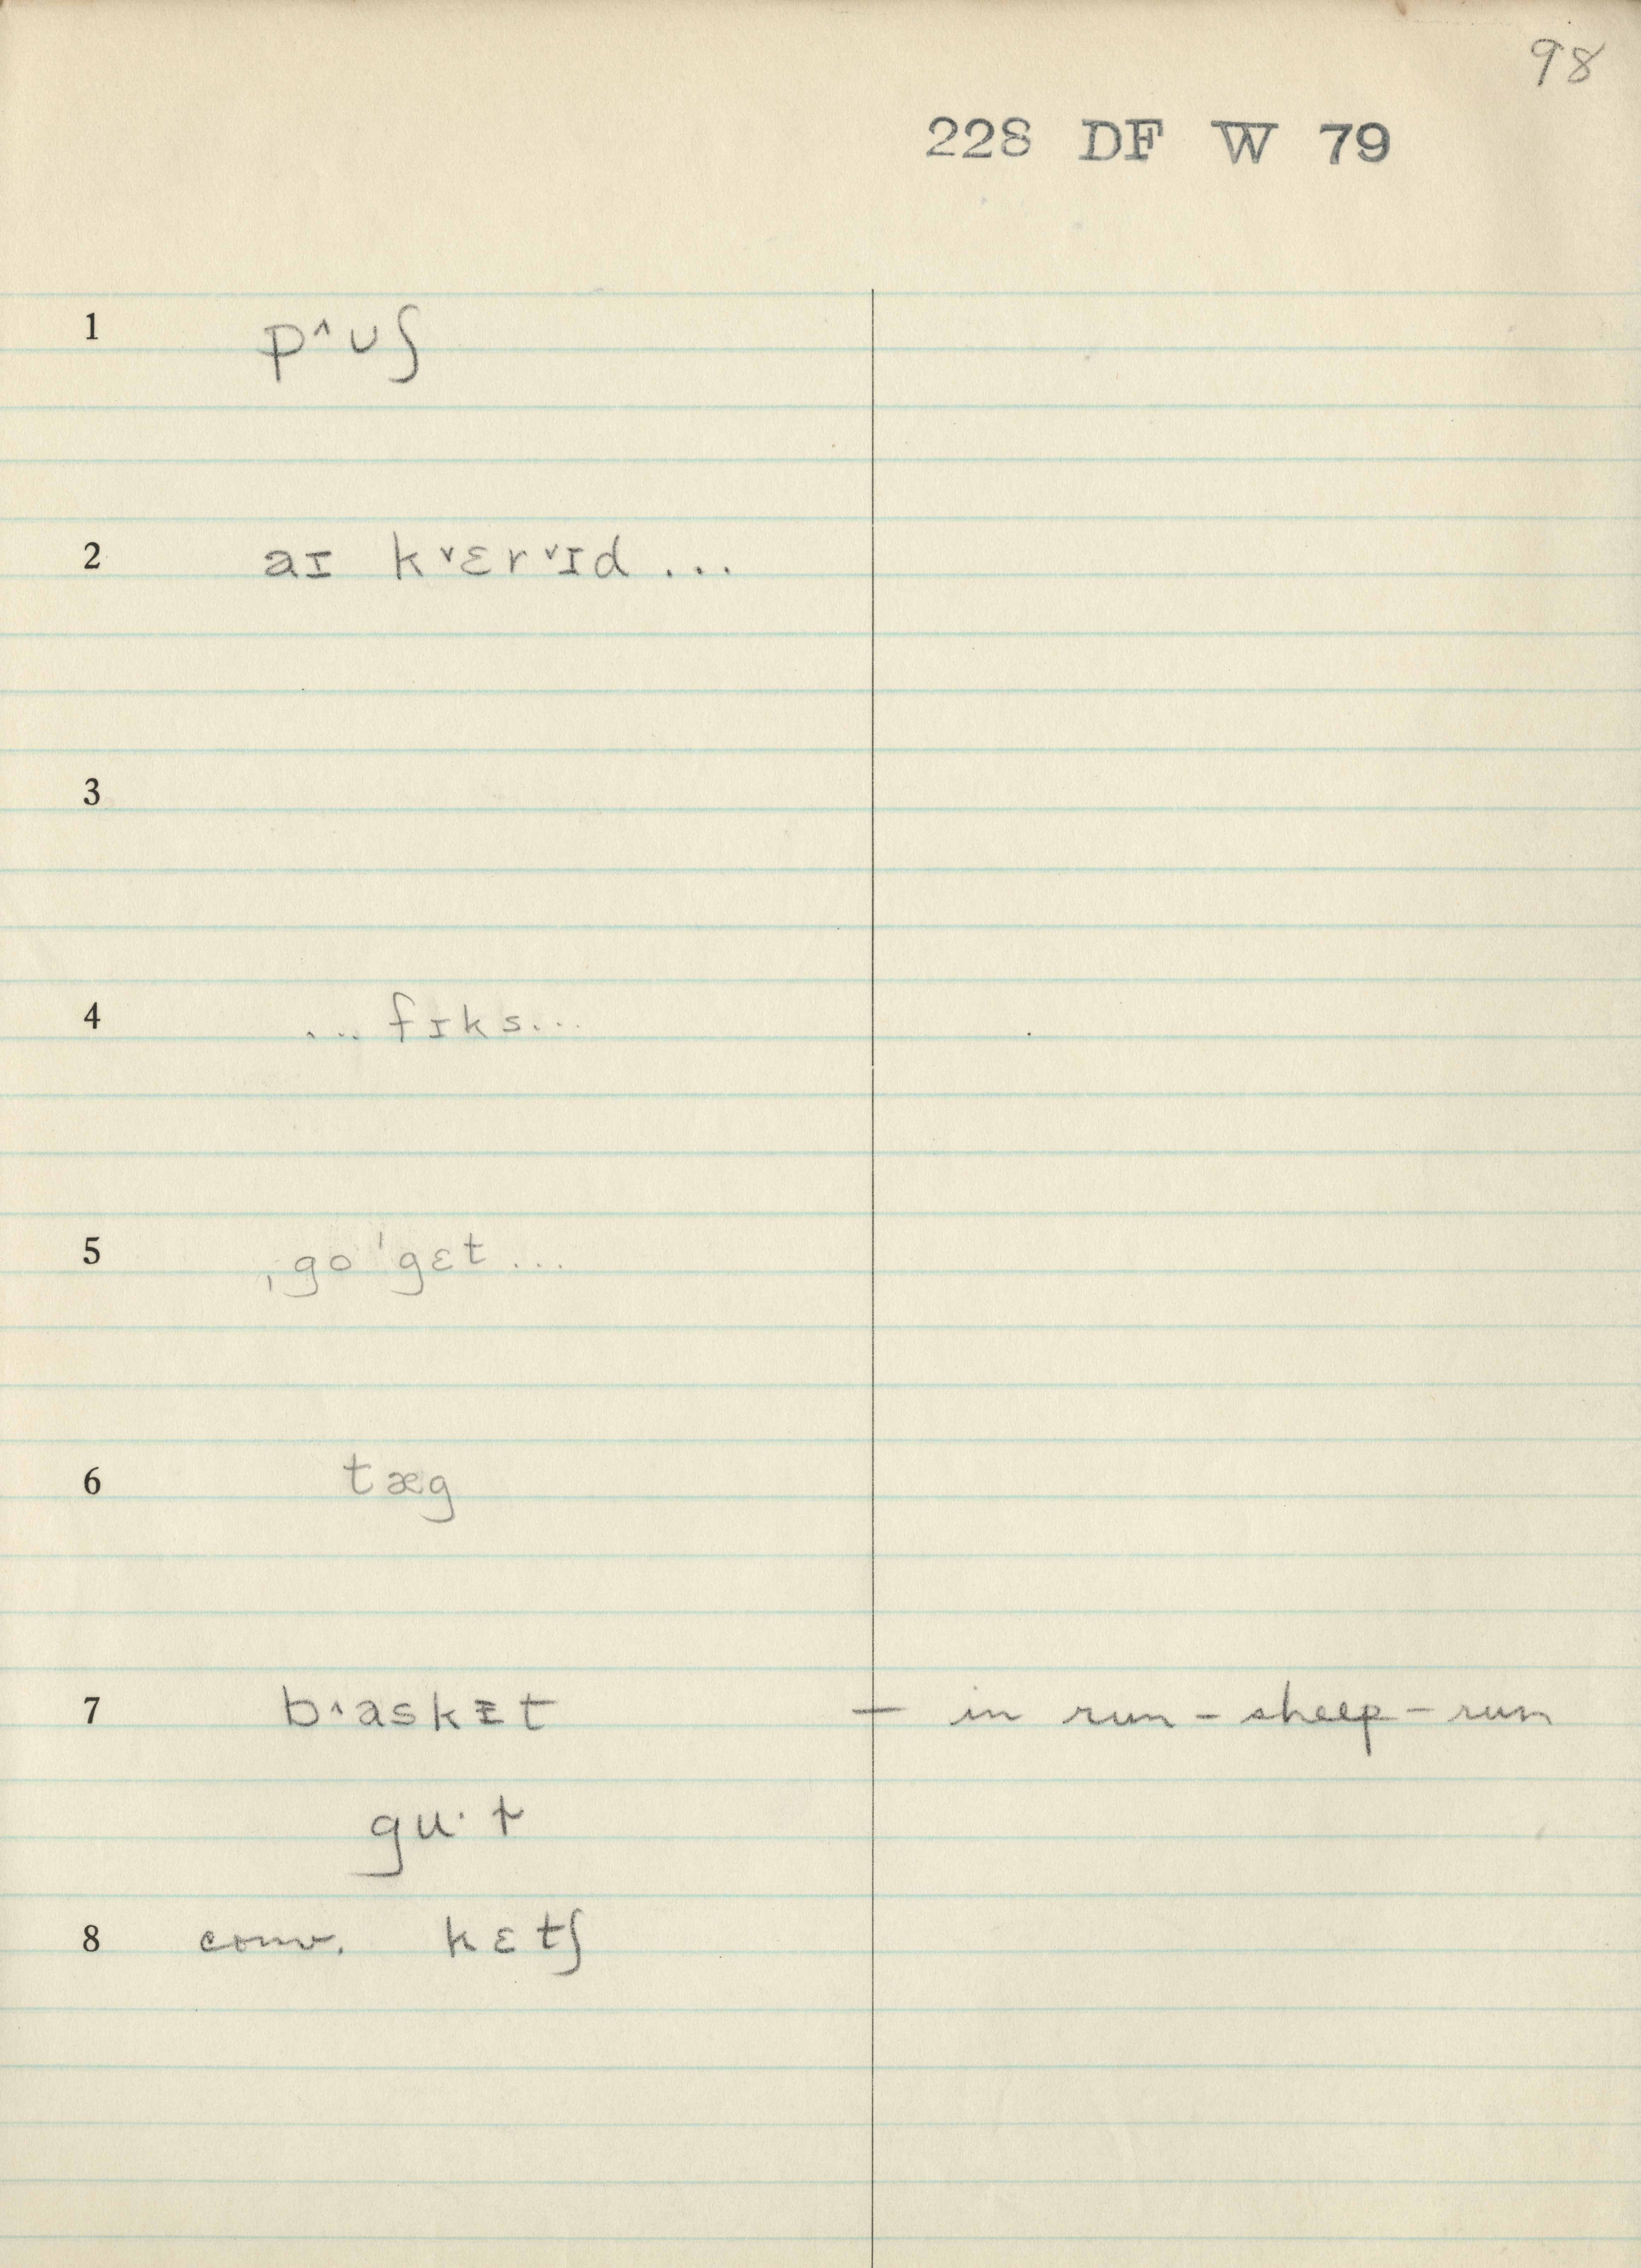 98
228 DF W 79
1 p^ʊʃ
2 aɪ k˅ɛr˅ɪd ...
3
4 ... fɪks ...
5 ˌgo ˈgɛt ...
6 tæg
7 b^askᵻt — in run-sheep-run
8 conv. kɛtʃ